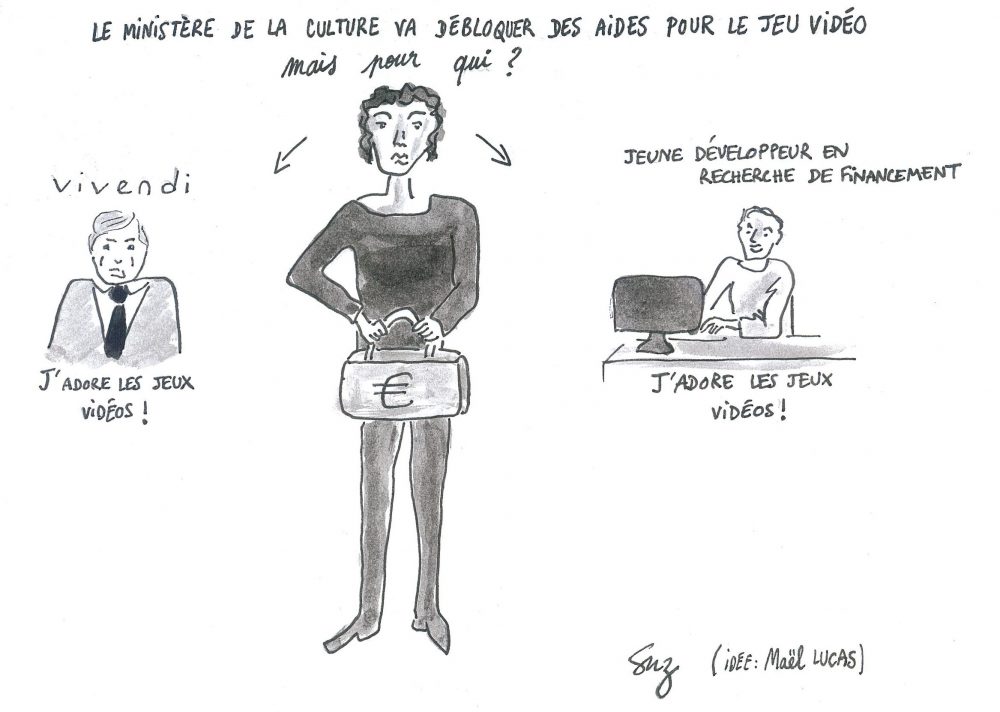 LE MINISTÈRE DE LA CULTURE VA DÉBLOQUER DES AIDES POUR LE JEU VIDÉO
mais pour qui ?
vivendi
J'ADORE LES JEUX
VIDÉOS !
€
JEUNE DÉVELOPPEUR EN
RECHERCHE DE FINANCEMENT
J'ADORE LES JEUX
VIDÉOS !
Suz (IDÉE : Maël LUCAS)